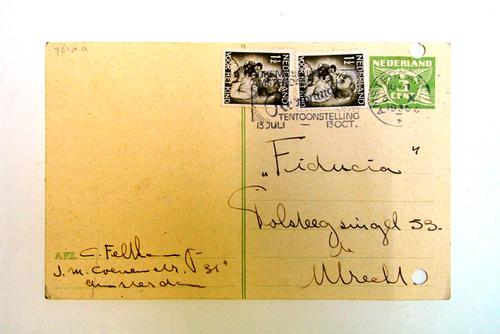 7610a
1½
NEDERLAND
VOOR HET KIND
1½
NEDERLAND
VOOR HET KIND
NEDERLAND
3
CENT
1935
TENTOONSTELLING
13 JULI — 13 OCT.
„Fiducia"
Tolsteegsingel 53.
Utrecht
AFZ. C. Felth
J. M. Coenenstr. 31"
Amsterdam